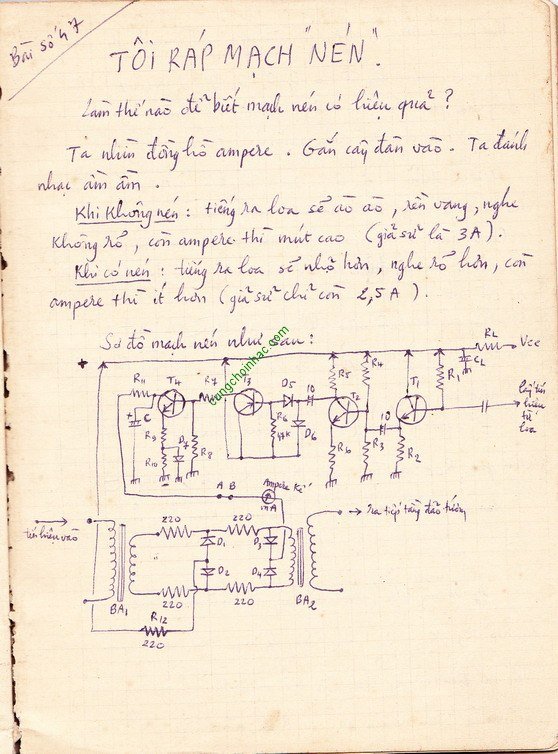 Bài số 47
TÔI RÁP MẠCH "NÉN".
Làm thế nào để biết mạch nén có hiệu quả ?
Ta nhìn đồng hồ ampere . Gắn cây đàn vào . Ta đánh
nhạc ầm ầm .
Khi không nén : tiếng ra loa sẽ ào ào , rền vang , nghe
không rõ , còn ampere thì mút cao (giả sử là 3A) .
Khi có nén : tiếng ra loa sẽ nhỏ hơn , nghe rõ hơn , còn
ampere thì ít hơn (giả sử chỉ còn 2,5A) .
Sơ đồ mạch nén như sau :
cungchoinhac.com
R11 T4 R7 T3 D5 10 R5 T2 R4 T1 R1 RL Vcc
+ C R9 D7 R8 R6 D6 R3 10 R2 CL
R10 R6
Lấy tín
hiệu
từ
loa
A B
Ampere Kế
mA
tín hiệu vào
220 220
D1 D3
D2 D4
220 220
BA1 BA2
Ra tiếp tầng đảo tướng
R12
220